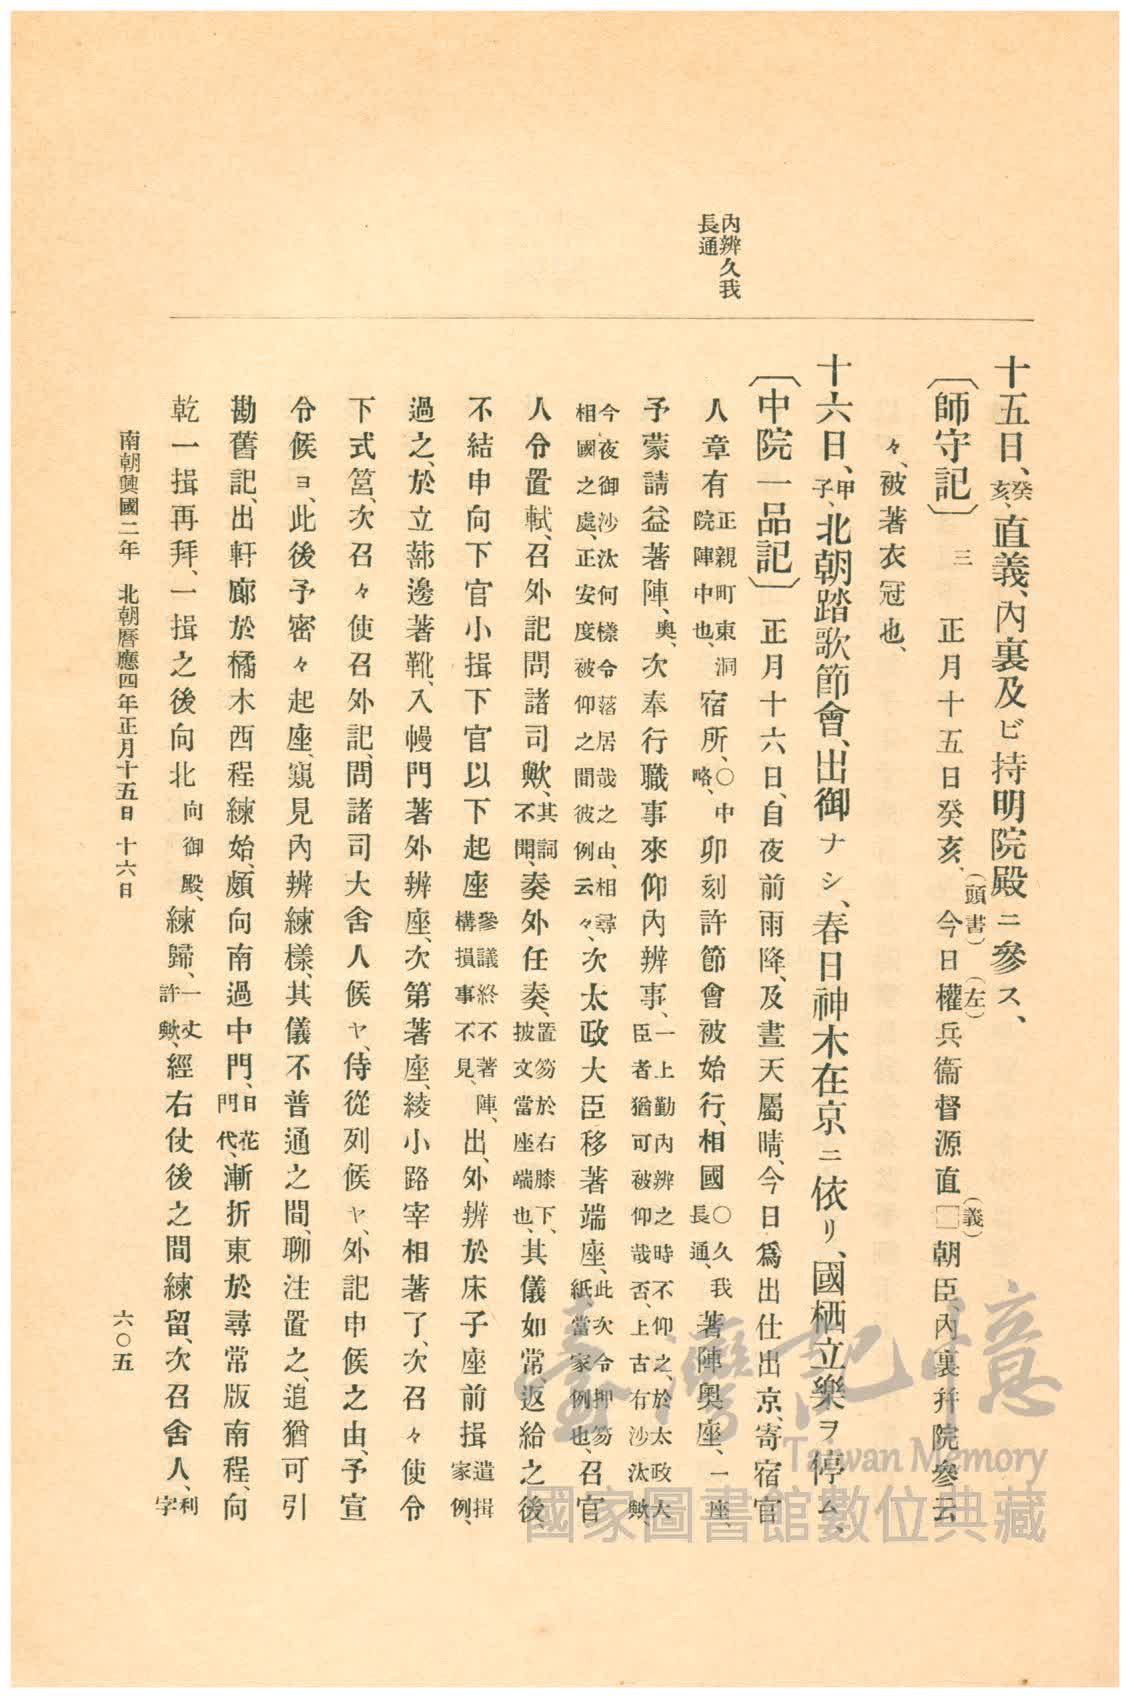 內辨久我
長通
十五日、癸亥、直義、內裏及ビ持明院殿ニ參ス、
〔師守記〕 三 正月十五日癸亥、(頭書)今日權(左)兵衞督源直□(義)朝臣、內裏幷院參云
々、被著衣冠也、
十六日、甲子、北朝踏歌節會、出御ナシ、春日神木在京ニ依リ、國栖立樂ヲ停ム、
〔中院一品記〕 正月十六日、自夜前雨降、及晝天屬晴、今日爲出仕出京、寄宿官
人章有正親町東洞院陣中也、宿所、〇中略、卯刻許節會被始行、相國〇久我長通、著陣奧座、一座、
予蒙請益著陣、奧、次奉行職事來仰內辨事、一上勤內辨之時不仰之、於太政大臣者猶可被仰哉否、上古有沙汰歟、
今夜御沙汰何樣令落居哉之由、相尋相國之處、正安度被仰之間彼例云々、次太政大臣移著端座、此次令押笏紙當家例也、召官
人令置軾、召外記問諸司歟、其詞不聞、奏外任奏、置笏於右膝下、披文當座端也、其儀如常、返給之後、
不結申向下官小揖下官以下起座參議終不著陣、構損事不見、出、外辨於床子座前揖遣揖家例、
過之、於立蔀邊著靴、入幔門著外辨座、次第著座、綾小路宰相著了、次召々使令
下式筥、次召々使召外記、問諸司大舍人候ヤ、侍從列候ヤ、外記申候之由、予宣
令候ヨ、此後予密々起座、窺見內辨練樣、其儀不普通之間、聊注置之、追猶可引
勘舊記、出軒廊於橘木西程練始、頗向南過中門、日花門代、漸折東於尋常版南程、向
乾一揖再拜、一揖之後向北向御殿、練歸、一丈許歟、經右仗後之間練留、次召舍人、利字
南朝興國二年 北朝曆應四年正月十五日 十六日
六〇五
臺灣記憶
Taiwan Memory
國家圖書館數位典藏